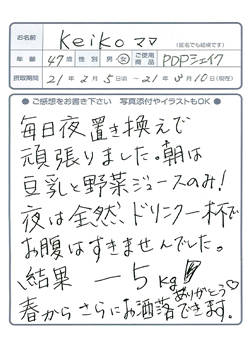 お名前 Keiko ママ (匿名でも結構です)
年齢 47歳 性別 男・女 ご使用商品 PDPシェイク
摂取期間 21年 2月 5日頃 ～ 21年 3月 10日(現在)
● ご感想をお書き下さい 写真添付やイラストもOK ●
毎日夜置き換えで
頑張りました。朝は
豆乳と野菜ジュースのみ!
夜は全然、ドリンク一杯で
お腹はすきませんでした。
結果 ー5kg
ありがとう♡
春からさらにお洒落できます。